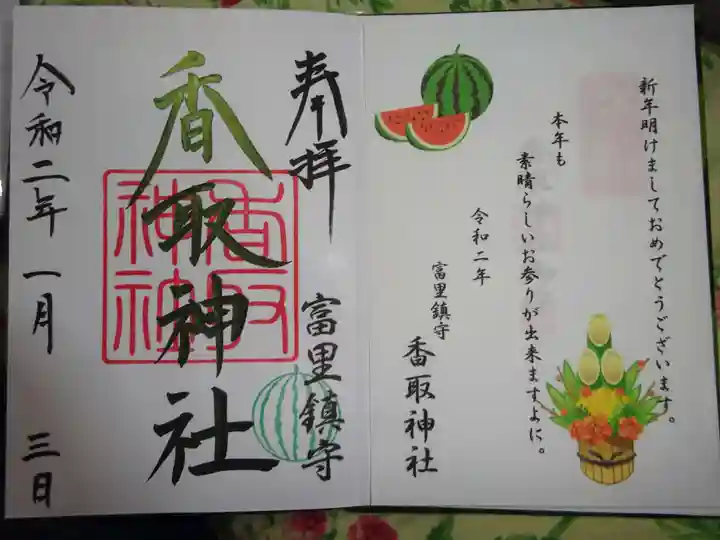 新年明けましておめでとうございます。
本年も
素晴らしいお参りが出来ますよに。
令和二年
富里鎮守
香取神社
奉拝
富里鎮守
香取神社
香取
神社
令和二年一月三日